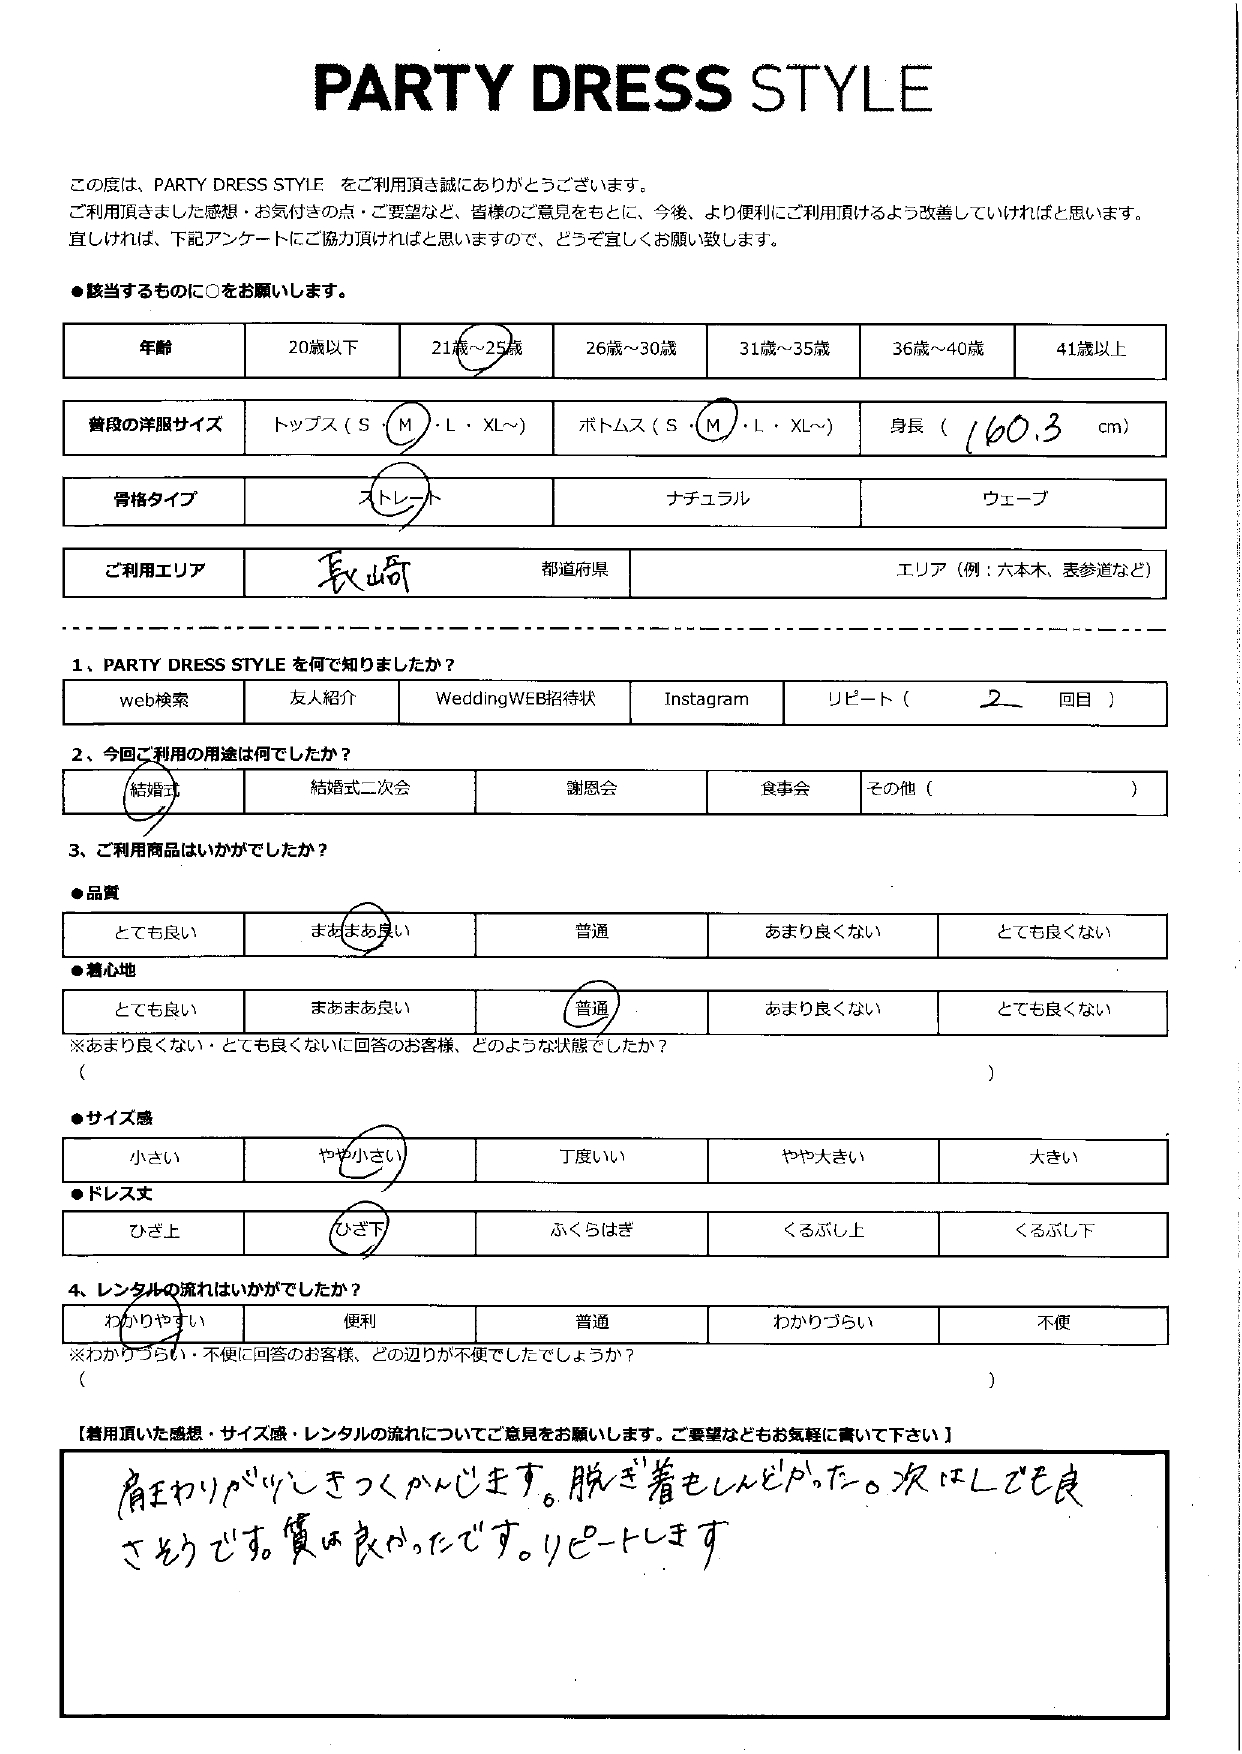 PARTY DRESS STYLE
この度は、PARTY DRESS STYLE をご利用頂き誠にありがとうございます。
ご利用頂きました感想・お気付きの点・ご要望など、皆様のご意見をもとに、今後、より便利にご利用頂けるよう改善していければと思います。
宜しければ、下記アンケートにご協力頂ければと思いますので、どうぞ宜しくお願い致します。
●該当するものに○をお願いします。
年齢 20歳以下 21歳～25歳 26歳～30歳 31歳～35歳 36歳～40歳 41歳以上
普段の洋服サイズ トップス ( S ・ M ・ L ・ XL～) ボトムス ( S ・ M ・ L ・ XL～) 身長 ( 160.3 cm)
骨格タイプ ストレート ナチュラル ウェーブ
ご利用エリア 長崎 都道府県 エリア（例：六本木、表参道など）
1、PARTY DRESS STYLE を何で知りましたか？
web検索 友人紹介 WeddingWEB招待状 Instagram リピート ( 2 回目 )
2、今回ご利用の用途は何でしたか？
結婚式 結婚式二次会 謝恩会 食事会 その他 ( )
3、ご利用商品はいかがでしたか？
●品質
とても良い まあまあ良い 普通 あまり良くない とても良くない
●着心地
とても良い まあまあ良い 普通 あまり良くない とても良くない
※あまり良くない・とても良くないに回答のお客様、どのような状態でしたか？
( )
●サイズ感
小さい やや小さい 丁度いい やや大きい 大きい
●ドレス丈
ひざ上 ひざ下 ふくらはぎ くるぶし上 くるぶし下
4、レンタルの流れはいかがでしたか？
わかりやすい 便利 普通 わかりづらい 不便
※わかりづらい・不便に回答のお客様、どの辺りが不便でしたでしょうか？
( )
【着用頂いた感想・サイズ感・レンタルの流れについてご意見をお願いします。ご要望などもお気軽に書いて下さい】
肩まわりが少しきつくかんじます。脱ぎ着もしんどかった。次はLでも良
さそうです。質は良かったです。リピートします